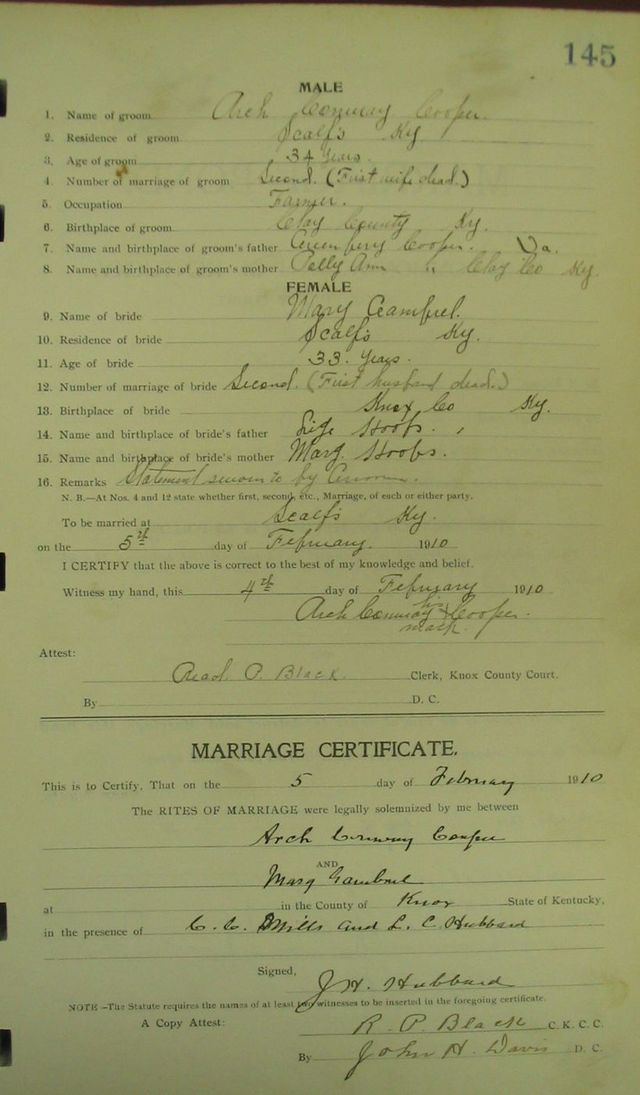 145
MALE
1. Name of groom Arch Conway Cooper.
2. Residence of groom Scalfs Ky
3. Age of groom 34 Years.
4. Number of marriage of groom Second. (First wife dead.)
5. Occupation Farmer.
6. Birthplace of groom Clay County Ky.
7. Name and birthplace of groom's father Cooper. Va.
8. Name and birthplace of groom's mother Polly Ann " Clay Co Ky.
FEMALE
9. Name of bride Mary Gambrel.
10. Residence of bride Scalfs Ky.
11. Age of bride 33. Years.
12. Number of marriage of bride Second. (First husband dead.)
13. Birthplace of bride Knox Co Ky.
14. Name and birthplace of bride's father Lige
15. Name and birthplace of bride's mother Mary
16. Remarks Statement sworn to by Groom.
N. B.—At Nos. 4 and 12 state whether first, second, etc., Marriage, of each or either party.
To be married at Scalfs Ky.
on the 5th day of February. 1910
I CERTIFY that the above is correct to the best of my knowledge and belief.
Witness my hand, this 4th day of February 1910
Arch Conway his x mark Cooper.
Attest:
Read P. Black. Clerk, Knox County Court.
By D. C.
MARRIAGE CERTIFICATE.
This is to Certify, That on the 5 day of February 1910
The RITES OF MARRIAGE were legally solemnized by me between
Arch Conway Cooper
AND
Mary Gambrel
at in the County of Knox State of Kentucky,
in the presence of C. C. Mills and L. C. Hubbard
Signed, J. H. Hubbard
NOTE—The Statute requires the names of at least two witnesses to be inserted in the foregoing certificate.
A Copy Attest: R. P. Black C. K. C. C.
By John H. Davis D. C.